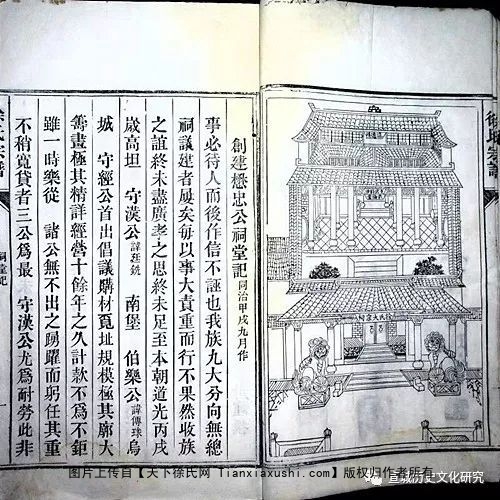 徐氏宗譜
徐氏大宗祠
創建懋忠公祠堂記 同治甲戌九月作
事必待人而後作信不誣也我族九大分向無總
祠議建者屢矣每以事大責重而行不果然收族
之誼終未盡廣孝之思終未足至本朝道光丙戌
歲高坦 守漢公 諱廷銑 南堡 伯樂公 諱傳珠 烏
城 守經公首出倡議購材覓址規模極其廓大
籌畫極其精詳經營十餘年之久計款不爲不鉅
雖一時樂從 諸公無不出之踴躍而躬任其重
不稍寬貸者三公爲最 守漢公尤爲耐勞此非
徐氏宗譜
祠堂記
一
图片上传自【天下徐氏网 Tianxiaxushi.com】版权归作者所有
宣城历史文化研究